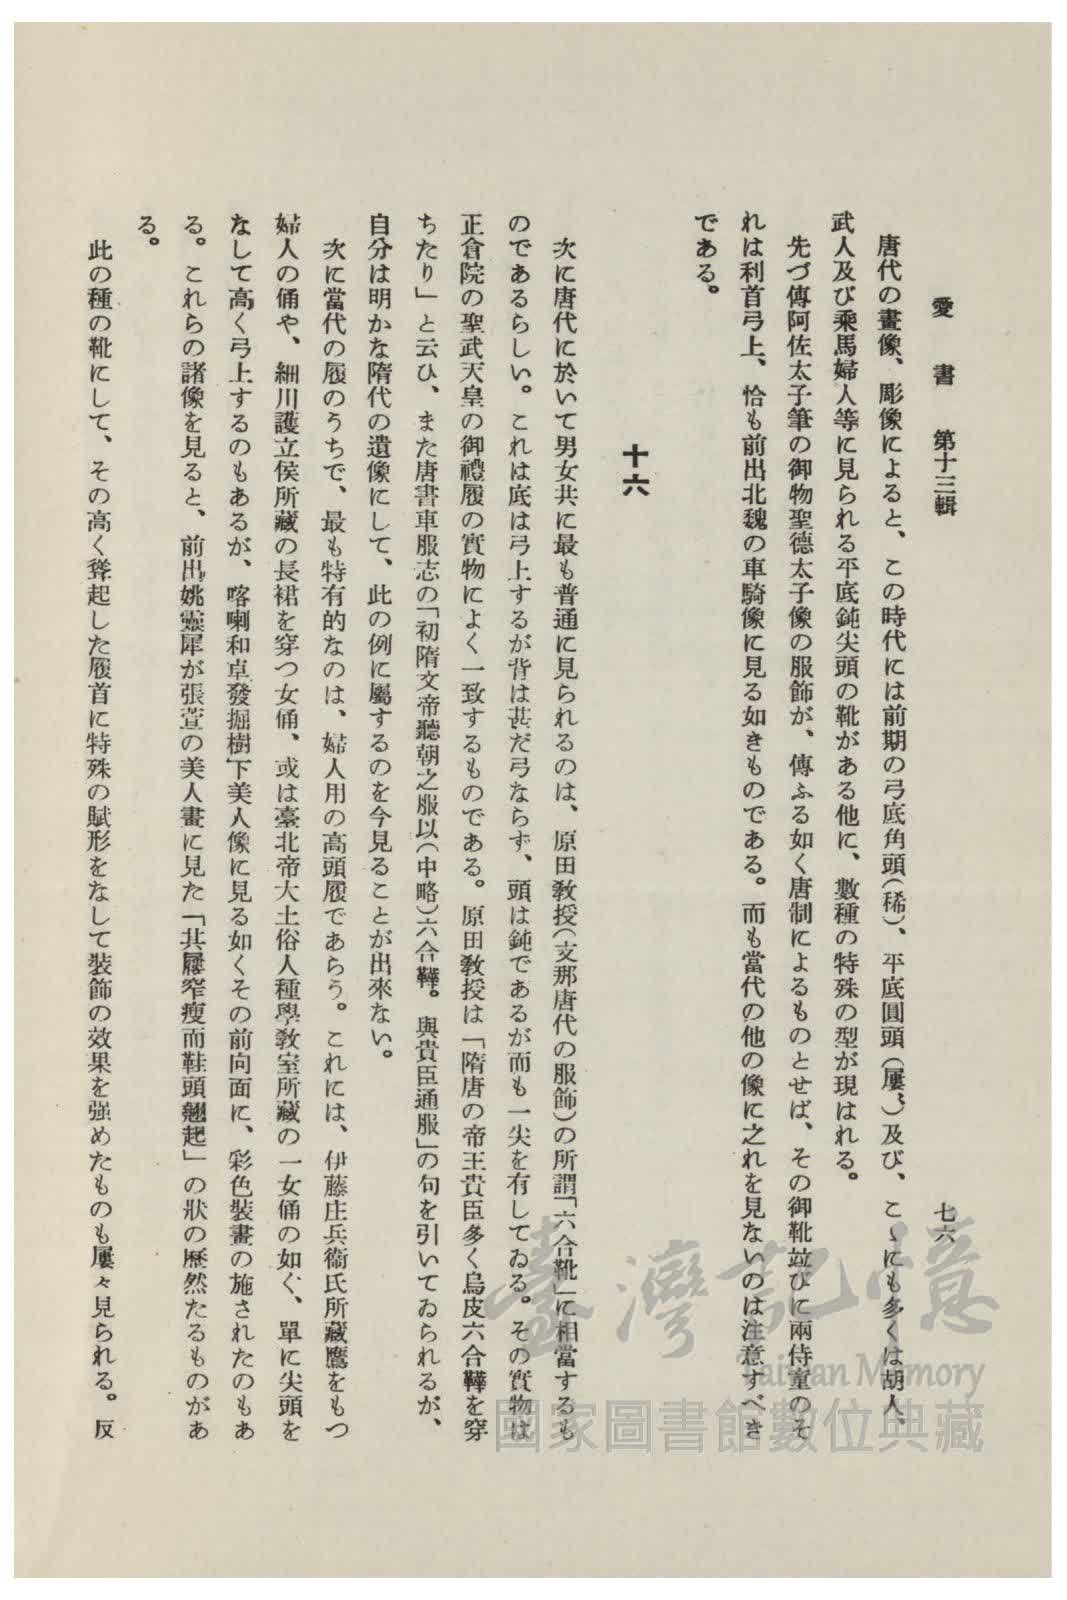 愛書 第十三輯 七六
唐代の畫像、彫像によると、この時代には前期の弓底角頭(稀)、平底圓頭(屢〻)及び、こゝにも多くは胡人、
武人及び乘馬婦人等に見られる平底鈍尖頭の靴がある他に、數種の特殊の型が現はれる。
先づ傳阿佐太子筆の御物聖德太子像の服飾が、傳ふる如く唐制によるものとせば、その御靴竝びに兩侍童のそ
れは利首弓上、恰も前出北魏の車騎像に見る如きものである。而も當代の他の像に之れを見ないのは注意すべき
である。
十六
次に唐代に於いて男女共に最も普通に見られるのは、原田敎授(支那唐代の服飾)の所謂「六合靴」に相當するも
のであるらしい。これは底は弓上するが背は甚だ弓ならず、頭は鈍であるが而も一尖を有してゐる。その實物は
正倉院の聖武天皇の御禮履の實物によく一致するものである。原田敎授は「隋唐の帝王貴臣多く烏皮六合鞾を穿
ちたり」と云ひ、また唐書車服志の「初隋文帝聽朝之服以(中略)六合鞾。與貴臣通服」の句を引いてゐられるが、
自分は明かな隋代の遺像にして、此の例に屬するのを今見ることが出來ない。
次に當代の履のうちで、最も特有的なのは、婦人用の高頭履であらう。これには、伊藤庄兵衞氏所藏鷹をもつ
婦人の俑や、細川護立侯所藏の長裙を穿つ女俑、或は臺北帝大土俗人種學敎室所藏の一女俑の如く、單に尖頭を
なして高く弓上するのもあるが、喀喇和卓發掘樹下美人像に見る如くその前向面に、彩色裝畫の施されたのもあ
る。これらの諸像を見ると、前出姚靈犀が張萱の美人畫に見た「其屨窄瘦而鞋頭翹起」の狀の歷然たるものがあ
る。
此の種の靴にして、その高く聳起した履首に特殊の賦形をなして裝飾の效果を強めたものも屢々見られる。反
臺灣記憶
Taiwan Memory
國家圖書館數位典藏